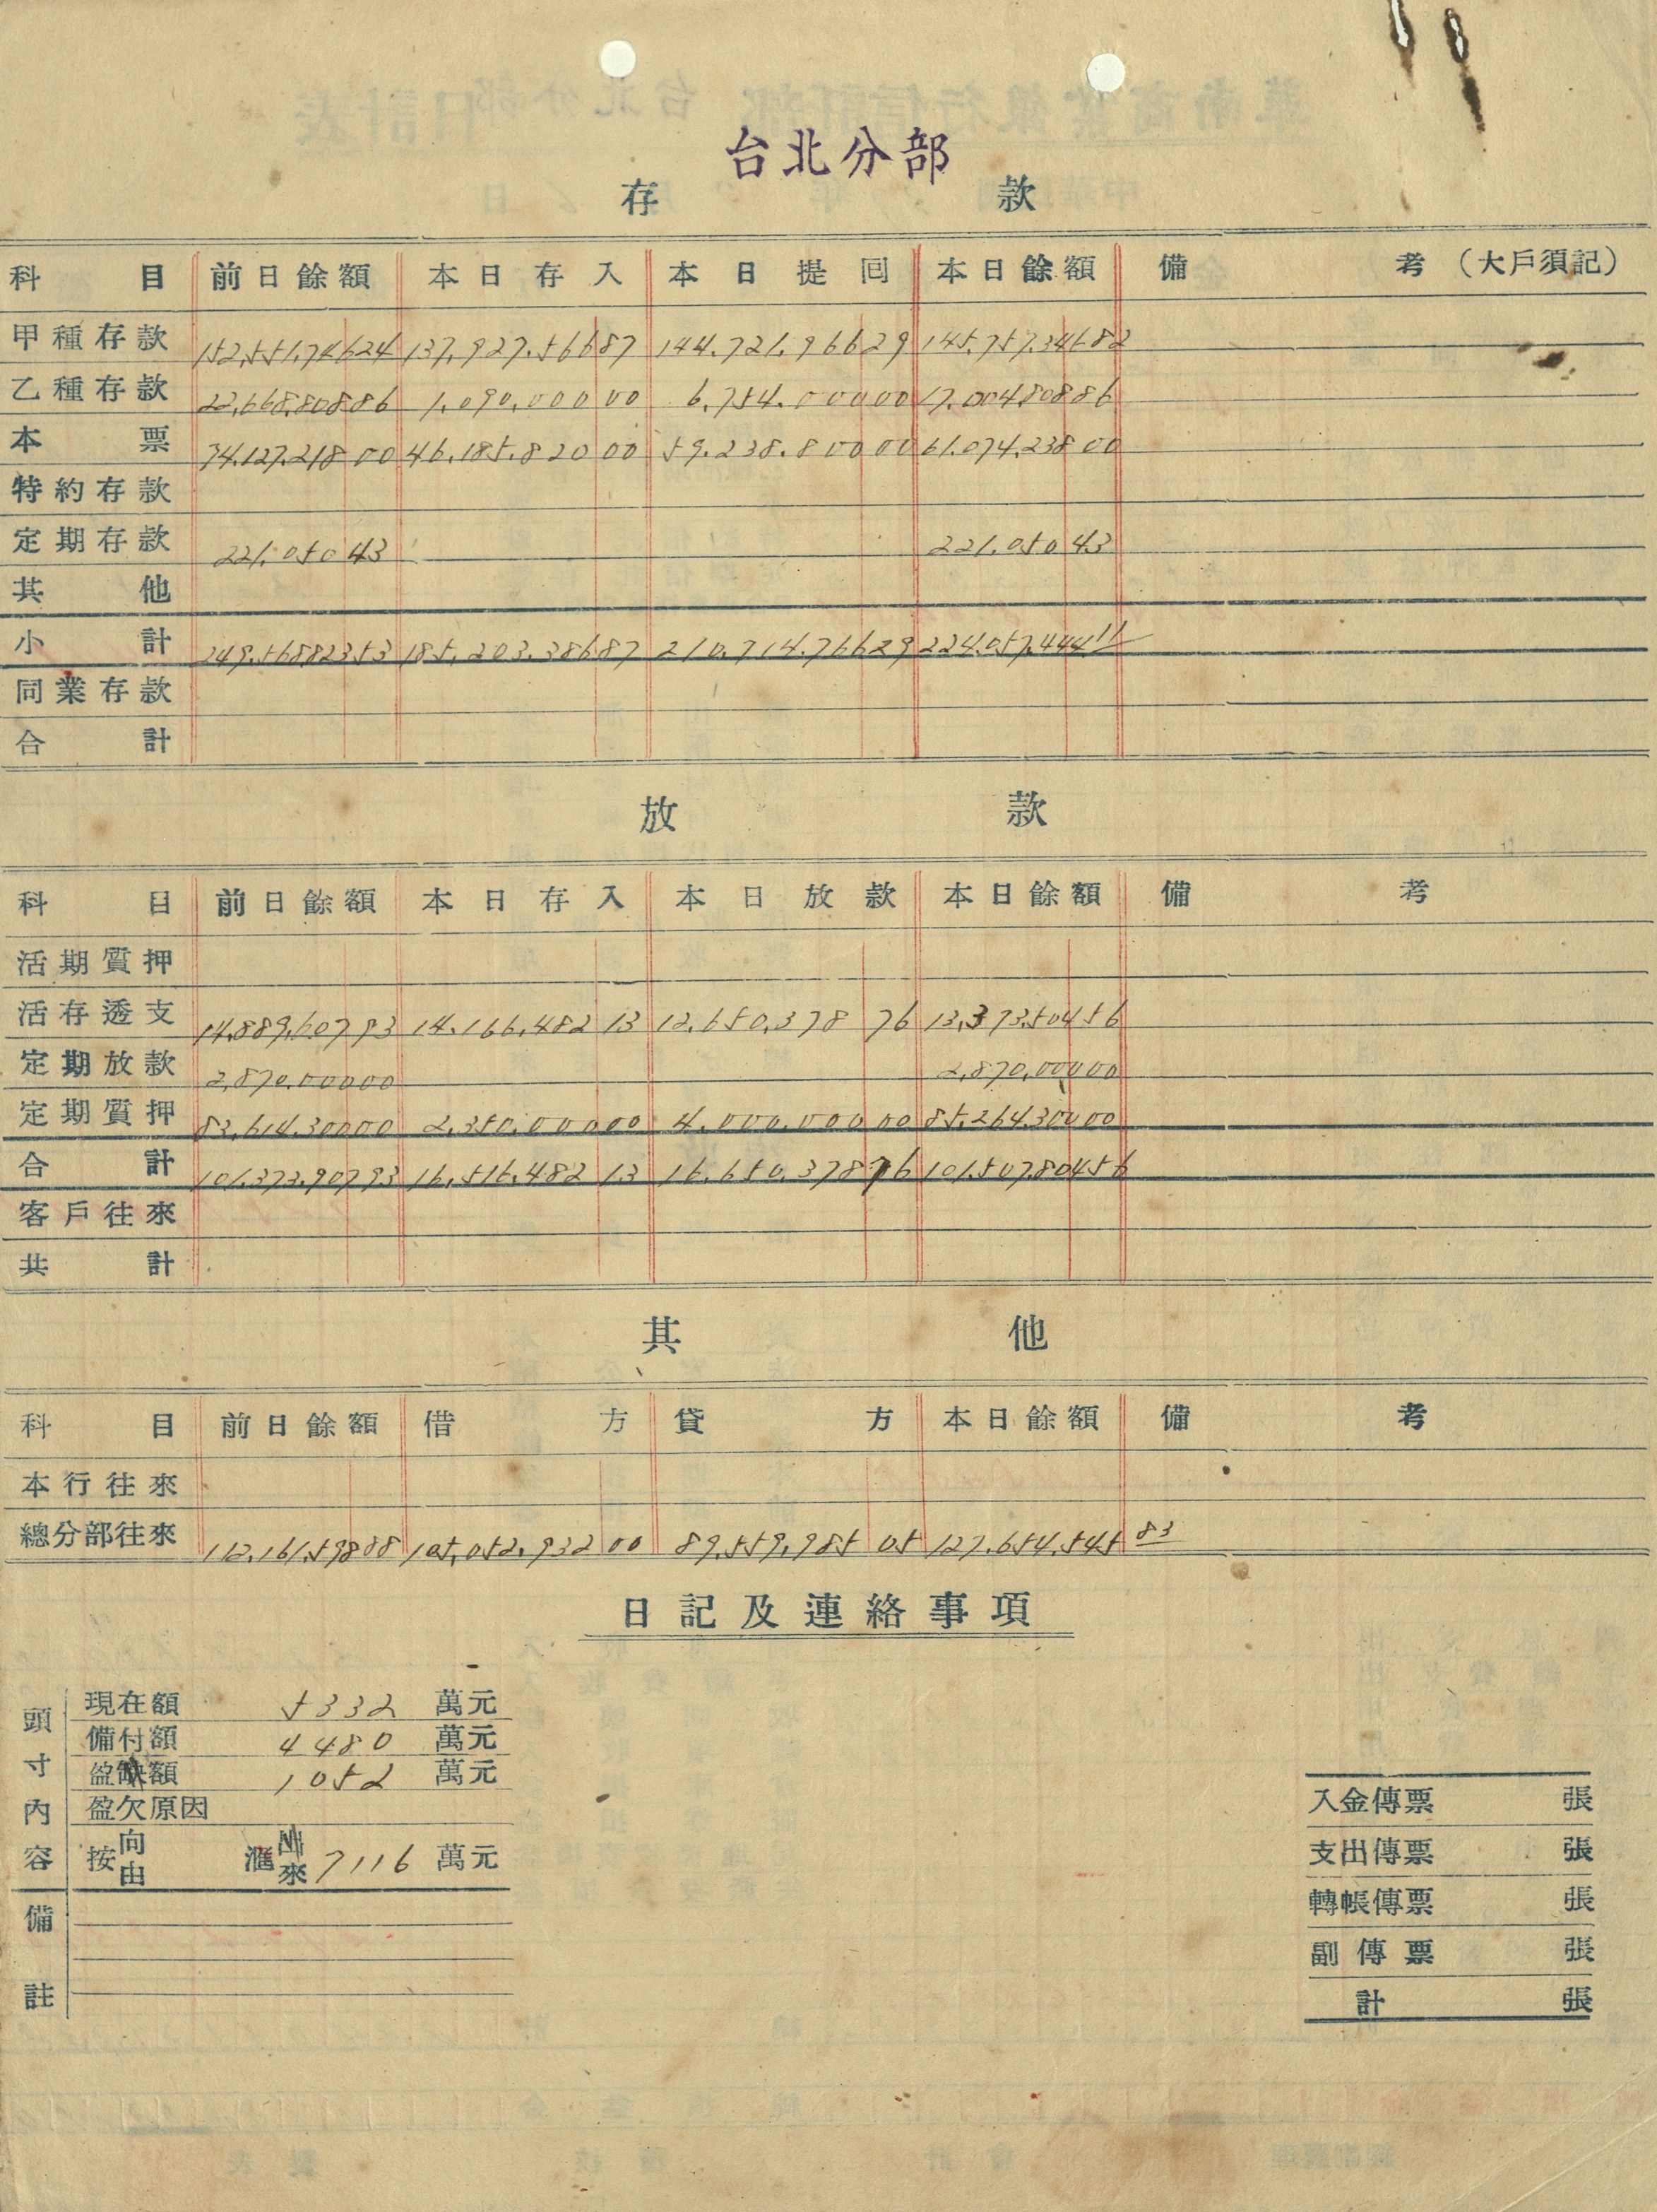 台北分部
存款
科目 前日餘額 本日存入 本日提回 本日餘額 備考（大戶須記）
甲種存款 152,551,746 24 137,927,566 87 144,721,966 29 145,757,346 82
乙種存款 22,668,808 86 1,090,000 00 6,754,000 00 17,004,808 86
本票 74,127,218 00 46,185,820 00 59,238,800 00 61,074,238 00
特約存款
定期存款 221,050 43 221,050 43
其他
小計 249,568,823 53 185,203,386 87 210,714,766 29 224,057,444 11
同業存款
合計
放款
科目 前日餘額 本日存入 本日放款 本日餘額 備考
活期質押
活存透支 14,889,607 93 14,166,482 13 12,650,378 76 13,373,504 56
定期放款 2,870,000 00 2,870,000 00
定期質押 83,614,300 00 2,350,000 00 4,000,000 00 85,264,300 00
合計 101,373,907 93 16,516,482 13 16,650,378 76 101,507,804 56
客戶往來
共計
其他
科目 前日餘額 借方 貸方 本日餘額 備考
本行往來
總分部往來 112,161,598 88 105,052,932 00 89,559,985 05 127,654,545 83
日記及連絡事項
頭寸內容
現在額 5332 萬元
備付額 4480 萬元
盈缺額 1052 萬元
盈欠原因
按向由 滙出來 7116 萬元
備註
入金傳票 張
支出傳票 張
轉帳傳票 張
副傳票 張
計 張